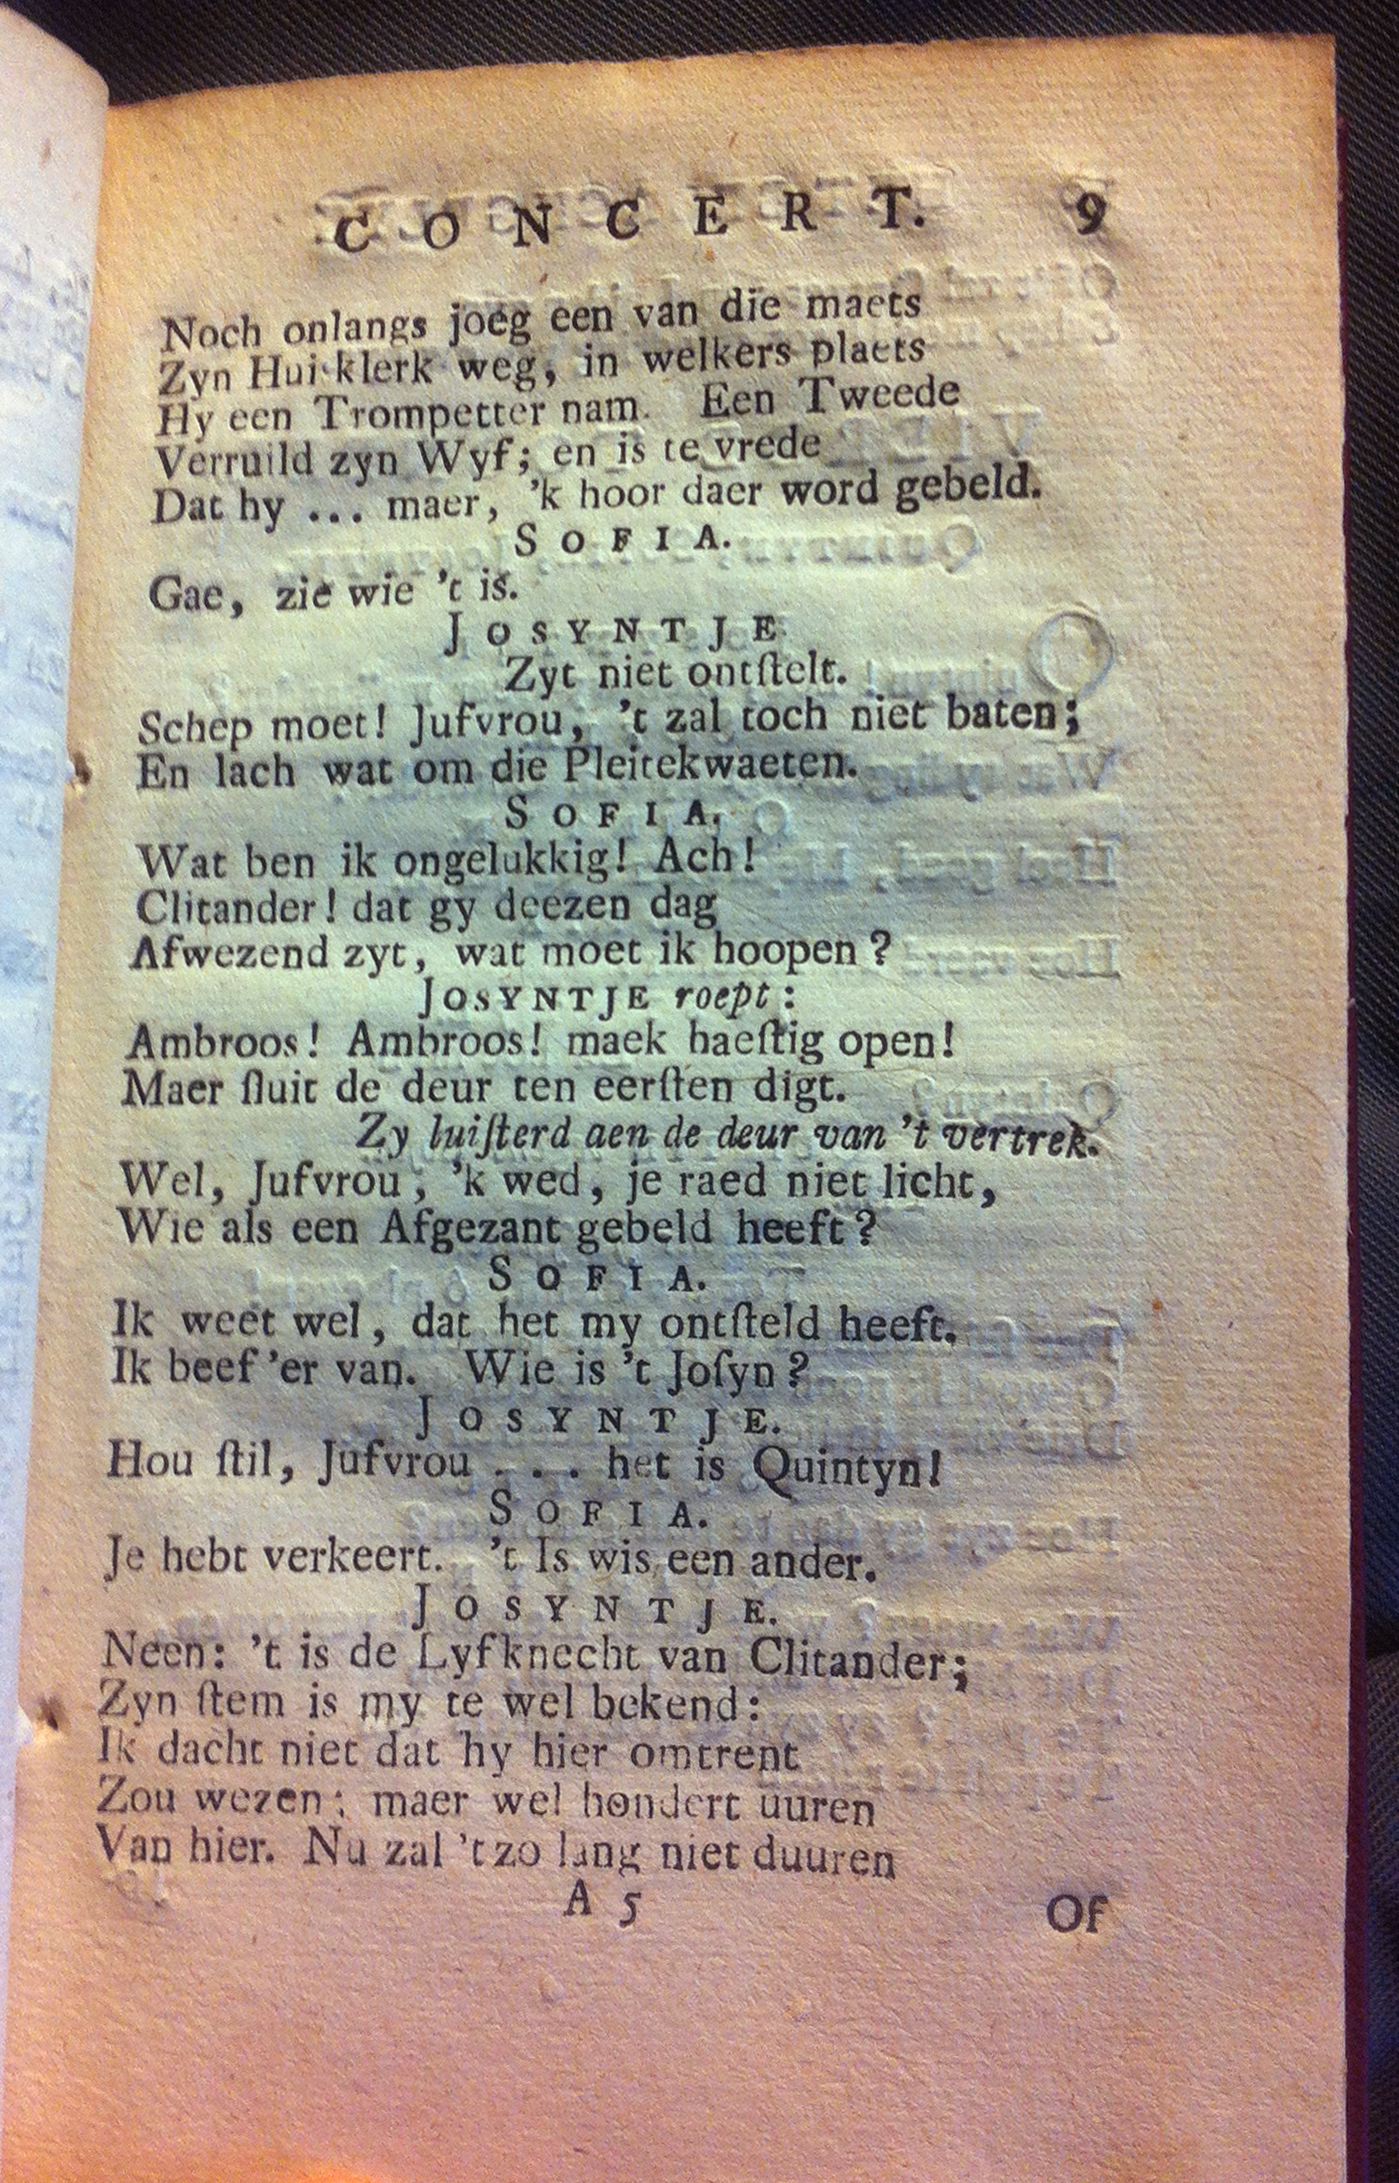 CONCERT. 9
Noch onlangs joeg een van die maets
Zyn Huisklerk weg, in welkers plaets
Hy een Trompetter nam. Een Tweede
Verruild zyn Wyf; en is te vrede
Dat hy ... maer, 'k hoor daer word gebeld.
SOFIA.
Gae, zie wie 't is.
JOSYNTJE
Zyt niet ontſtelt.
Schep moet! Jufvrou, 't zal toch niet baten;
En lach wat om die Pleitekwaeten.
SOFIA.
Wat ben ik ongelukkig! Ach!
Clitander! dat gy deezen dag
Afwezend zyt, wat moet ik hoopen?
JOSYNTJE roept:
Ambroos! Ambroos! maek haeſtig open!
Maer ſluit de deur ten eerſten digt.
Zy luiſterd aen de deur van 't vertrek.
Wel, Jufvrou, 'k wed, je raed niet licht,
Wie als een Afgezant gebeld heeft?
SOFIA.
Ik weet wel, dat het my ontſteld heeft.
Ik beef 'er van. Wie is 't Joſyn?
JOSYNTJE.
Hou ſtil, Jufvrou ... het is Quintyn!
SOFIA.
Je hebt verkeert. 't Is wis een ander.
JOSYNTJE.
Neen: 't is de Lyfknecht van Clitander;
Zyn ſtem is my te wel bekend:
Ik dacht niet dat hy hier omtrent
Zou wezen; maer wel hondert uuren
Van hier. Nu zal 't zo lang niet duuren
A 5 Of